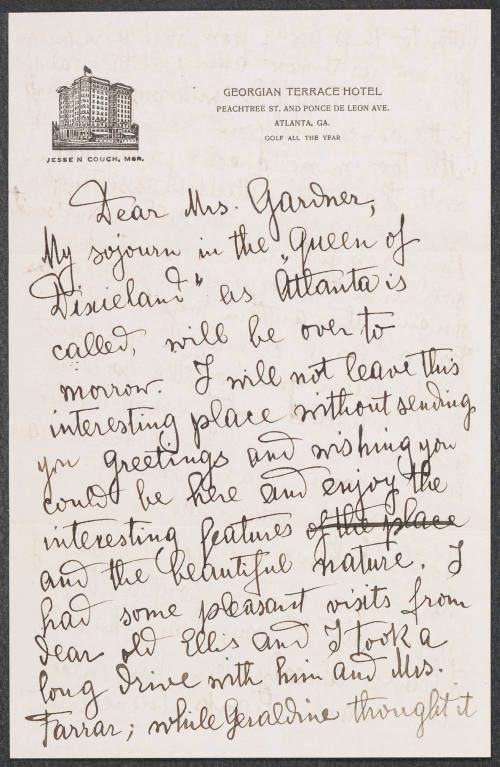 GEORGIAN TERRACE HOTEL
PEACHTREE ST. AND PONCE DE LEON AVE.
ATLANTA, GA.
GOLF ALL THE YEAR
JESSE N COUCH, MGR.
Dear Mrs. Gardner,
My sojourn in the "Queen of
Dixieland" as Atlanta is
called, will be over to
morrow. I will not leave this
interesting place without sending
you greetings and wishing you
could be here and enjoy the
interesting features of the place
and the beautiful nature. I
had some pleasant visits from
dear old Ellis and I took a
long drive with him and Mrs.
Farrar; while Geraldine thought it